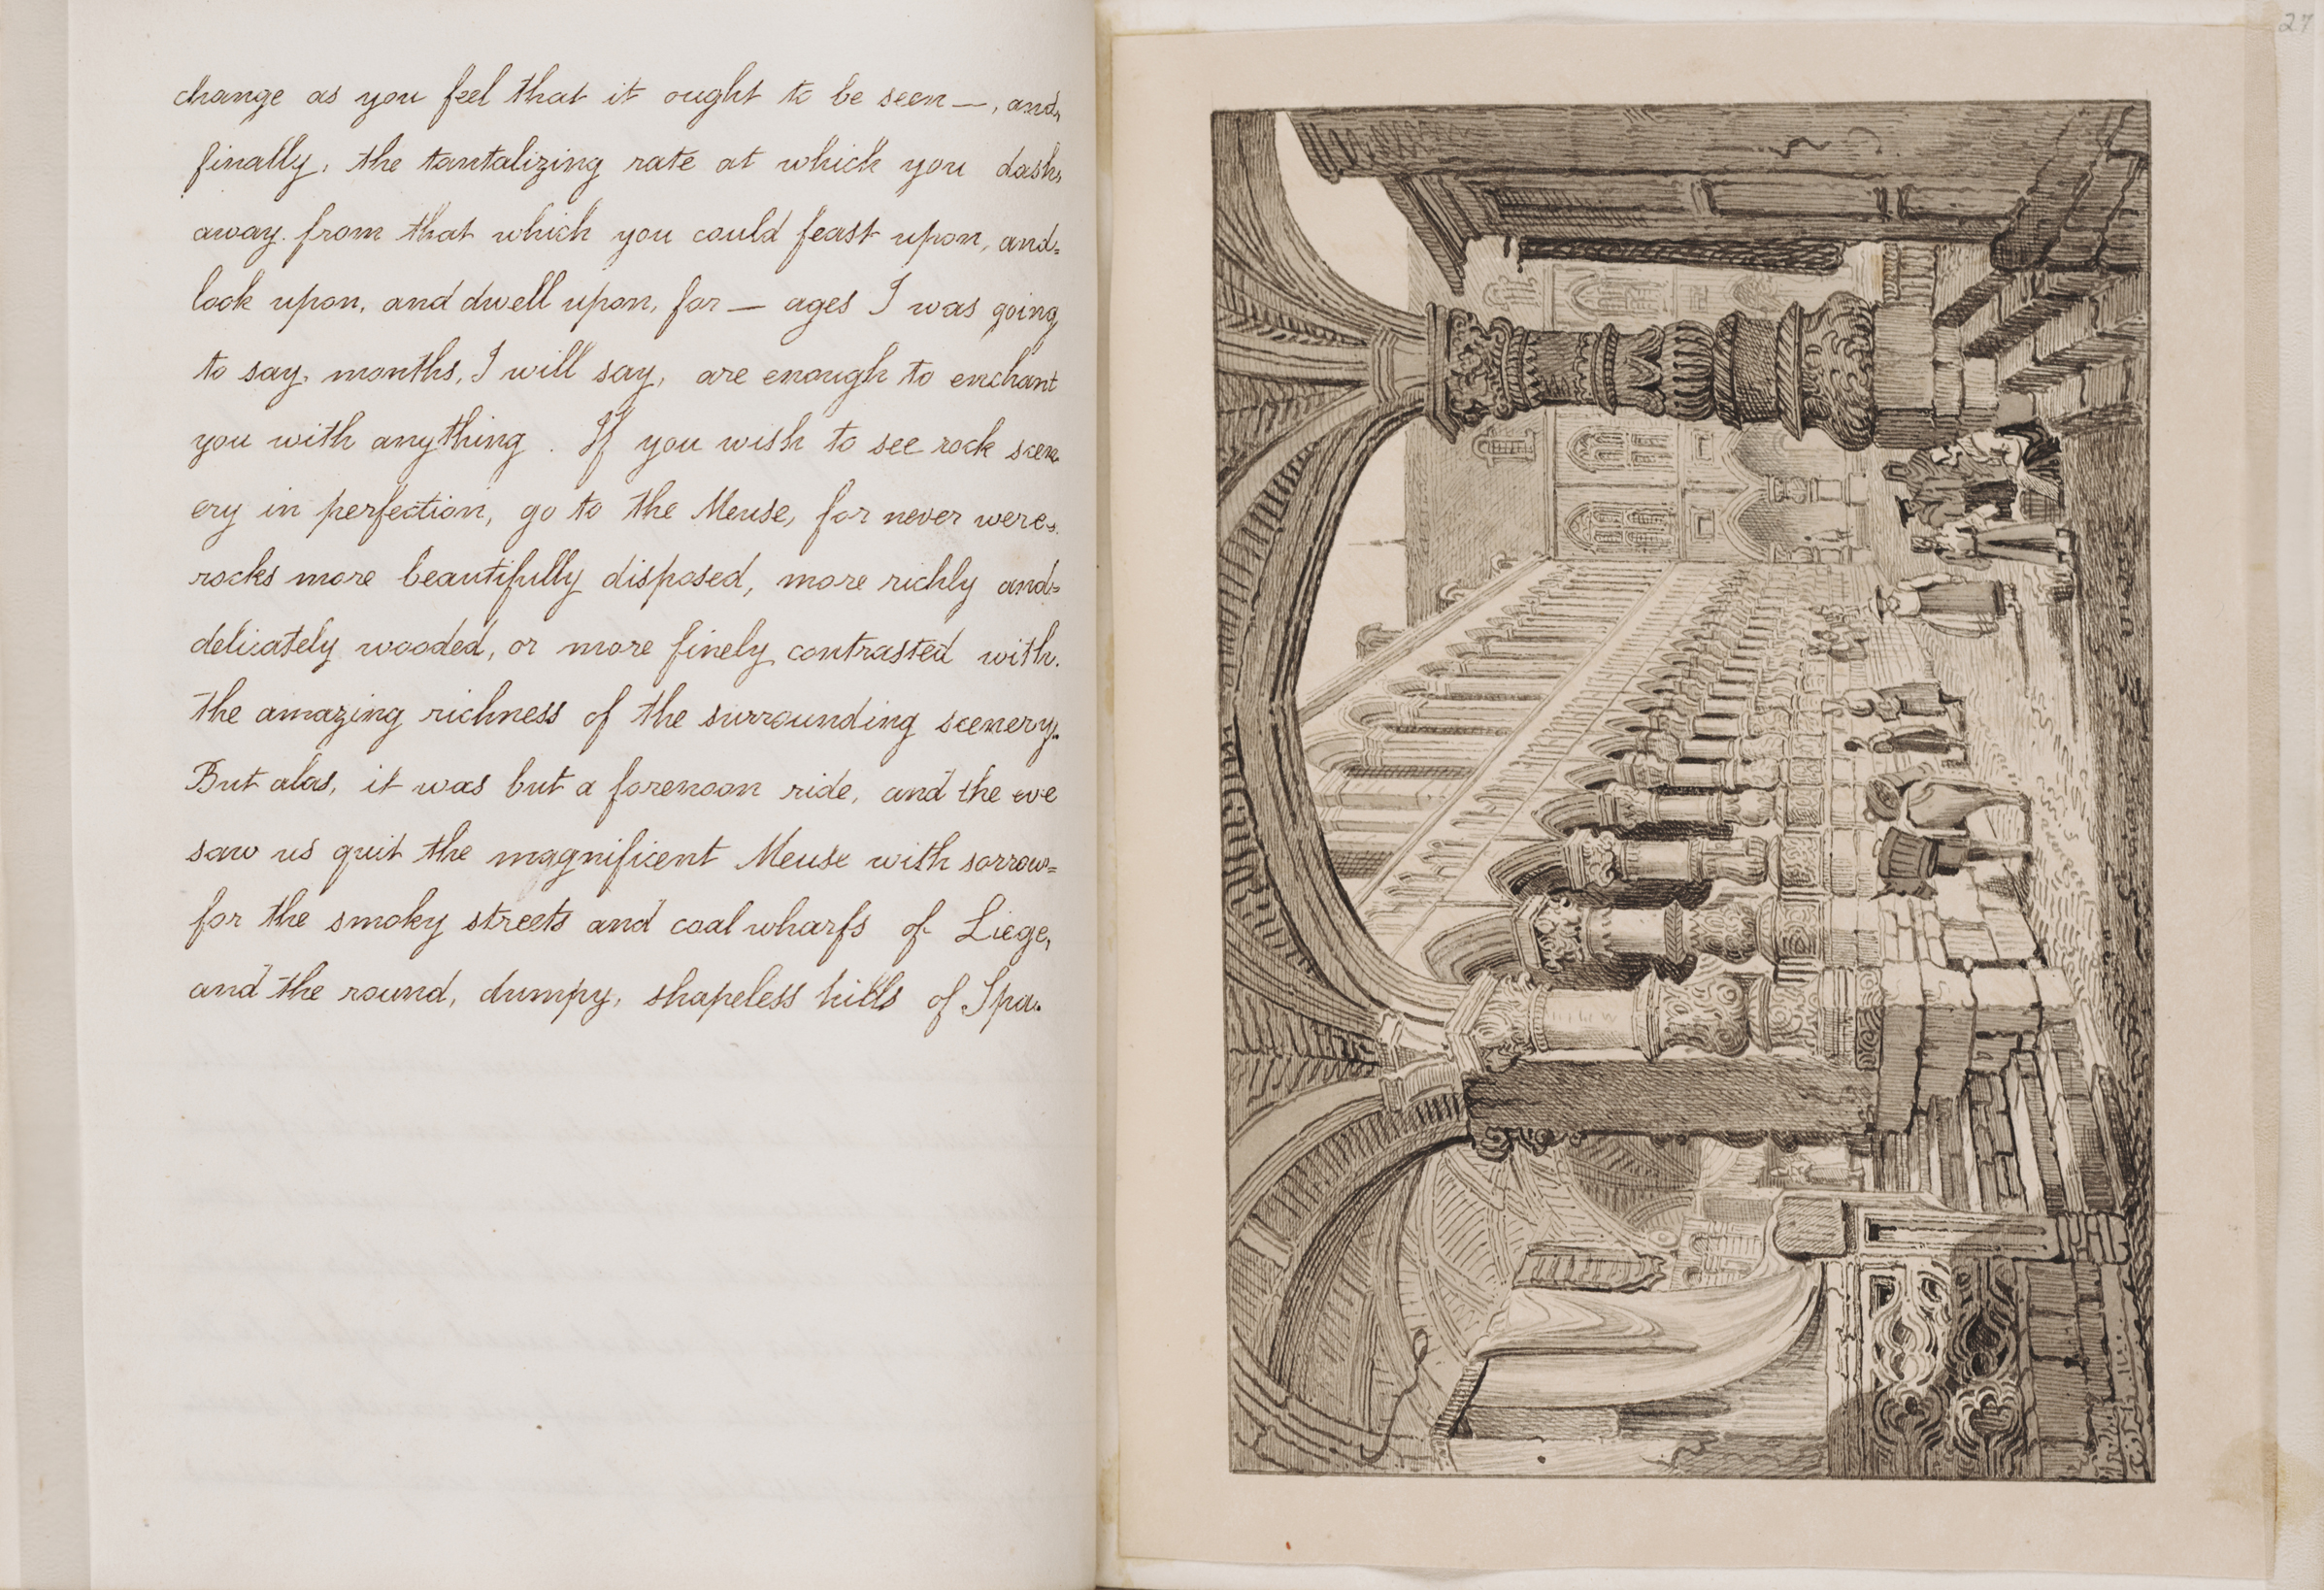 change as you feel that it ought to be seen —, and
finally, the tantalizing rate at which you dash
away from that which you could feast upon, and
look upon, and dwell upon, for — ages I was going
to say, months, I will say, are enough to enchant
you with anything. If you wish to see rock scen
ery in perfection, go to the Meuse, for never were
rocks more beautifully disposed, more richly and
delicately wooded, or more finely contrasted with
the amazing richness of the surrounding scenery.
But alas, it was but a forenoon ride, and the eve
saw us quit the magnificent Meuse with sorrow
for the smoky streets and coal wharfs of Liege,
and the round, dumpy, shapeless hills of Spa.
27